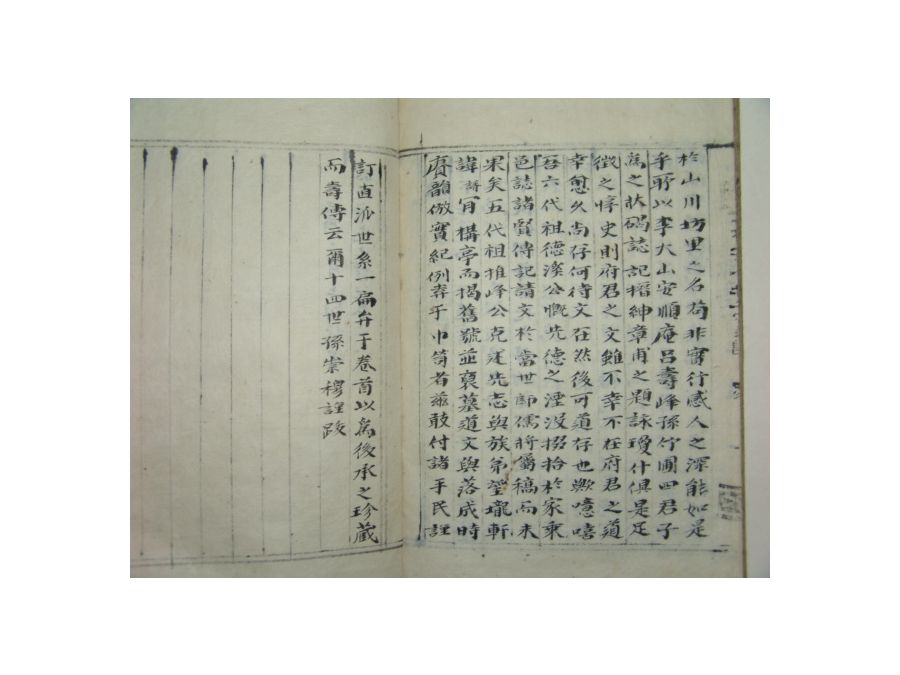 於山川坊里之名苟非實行感人之深能如是
乎耶以李大山安順庵呂壽峰孫竹圃四君子
爲之狀碣誌記搢紳章甫之題詠瓊什俱是足
徵之惇史則府君之文雖不幸不在府君之道
幸愈久尚存何待文在然後可道存也歟噫嘻
吾六代祖德溪公慨先德之湮沒掇拾於家乘
邑誌諸賢傳記請文於當世師儒將屬稿而未
果矣五代祖推峰公克述先志與族弟望瓏軒
諱 肯構亭而揭舊號並裒墓道文與落成時
賡韻倣實紀例弆于巾笥者玆敢付諸手民謹
訂直派世系一扁弁于卷首以爲後承之珍藏
而壽傳云爾十四世孫崇穆謹跋